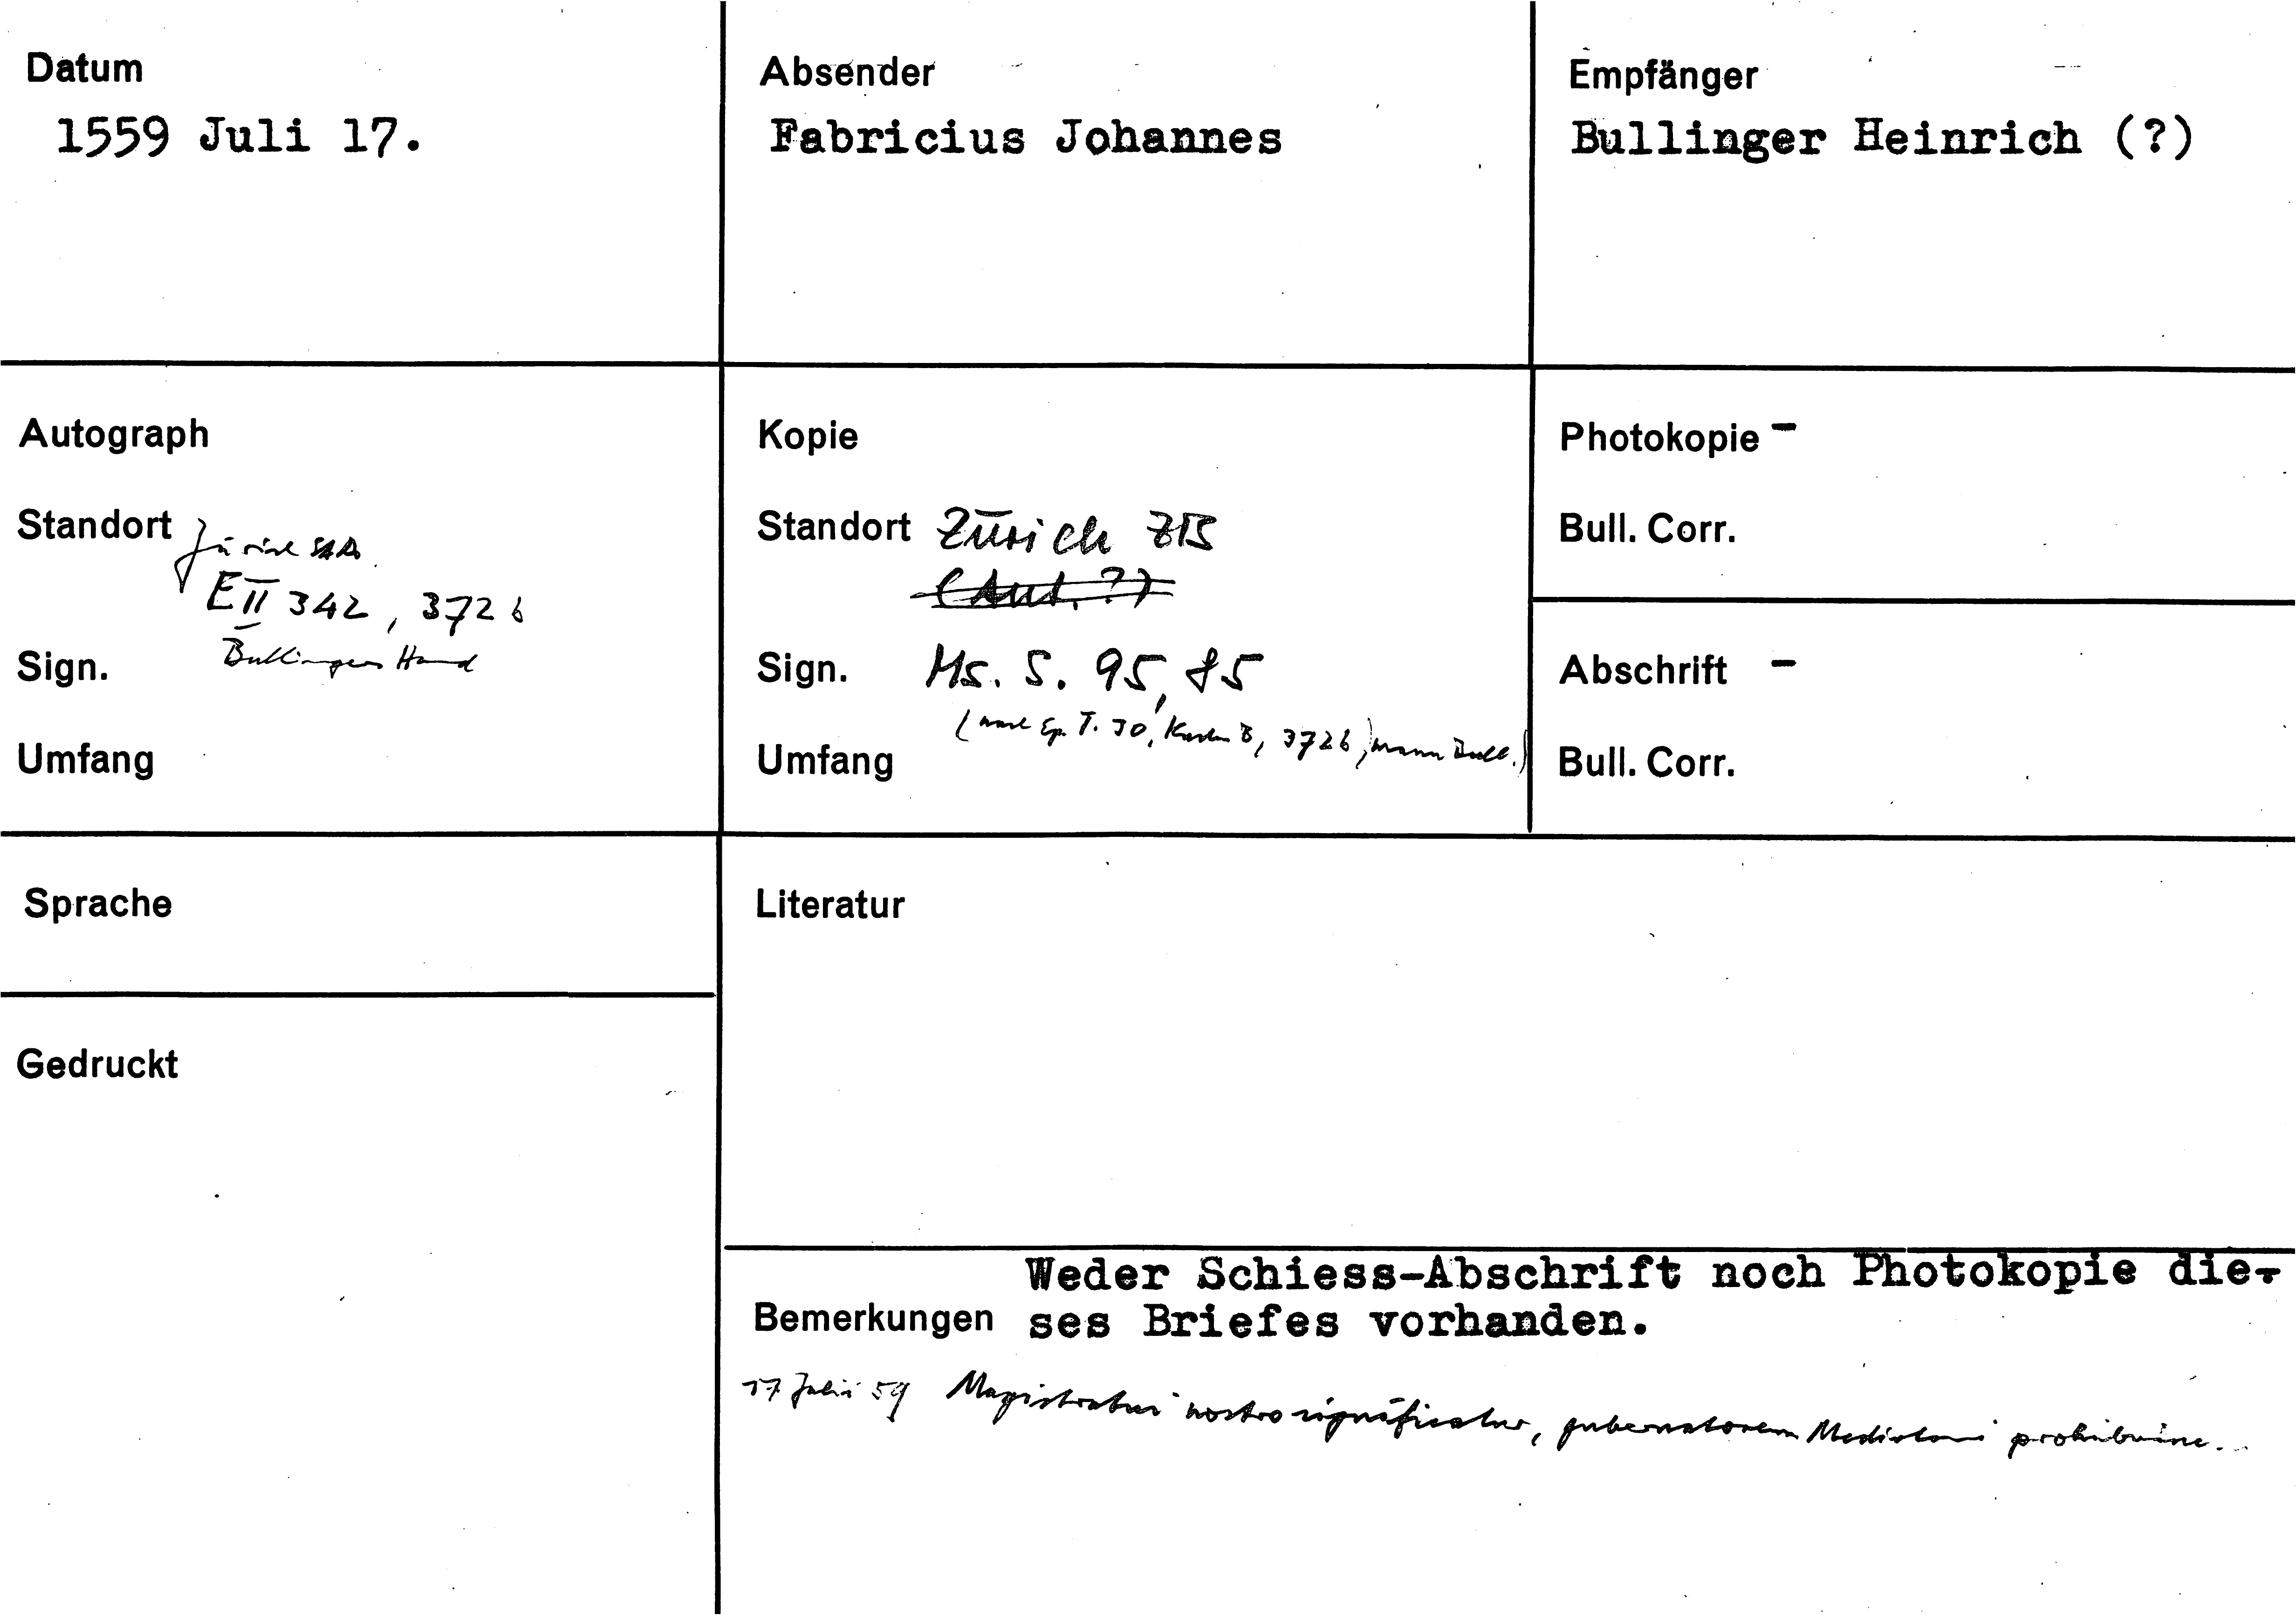 Datum
1559 Juli 17.
Absender
Fabricius Johannes
Empfänger
Bullinger Heinrich (?)
Autograph
Standort Zürich StA
E II 342, 372 b
Sign. Bullingers Hand
Umfang
Kopie
Standort Zürich ZB
(Aut. ?)
Sign. Ms. S. 95, 85
(nach Ep. T. 30, 372 b, manu Bull.)
Umfang
Photokopie -
Bull. Corr.
Abschrift -
Bull. Corr.
Sprache
Literatur
Gedruckt
Weder Schiess-Abschrift noch Photokopie die-
Bemerkungen ses Briefes vorhanden.
17 Julii 59 Magistratui nostro significatur, gubernatorem Mediolani prohibuisse...